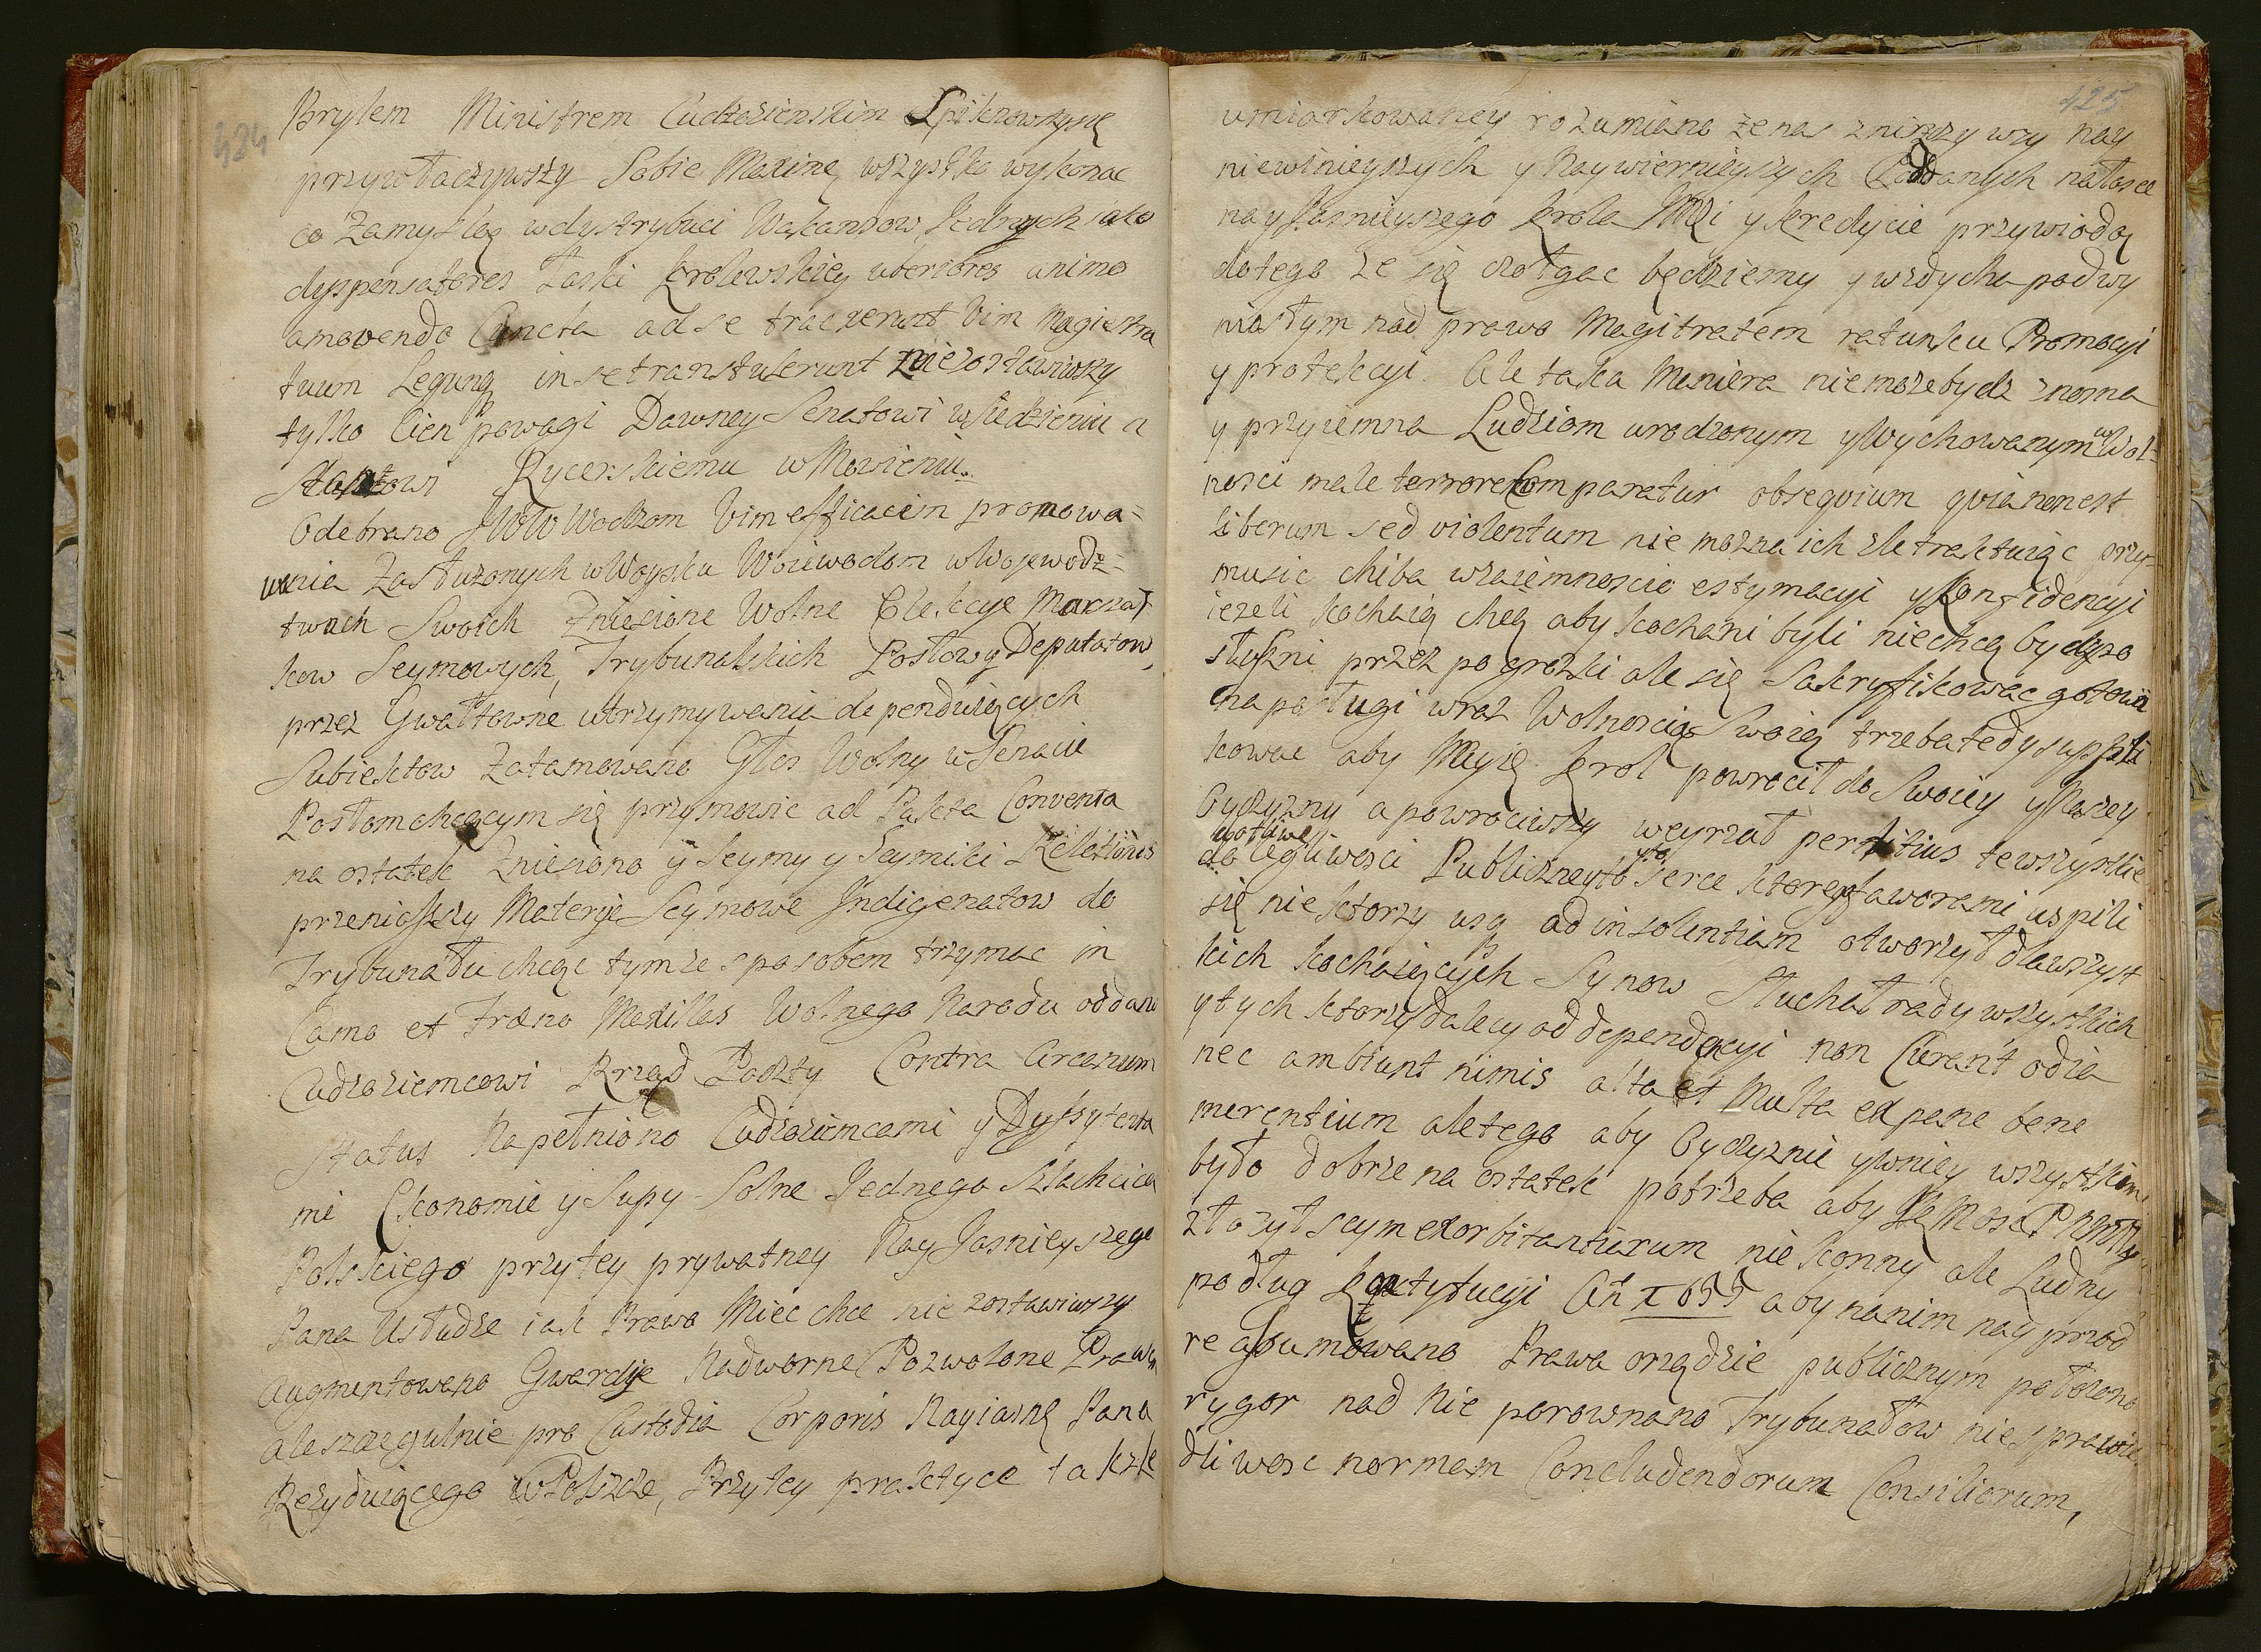 424
Brylem Ministrem Cudzozienskim Spiknowszysię
przywłaczywszy Sobie Maximę wszystko wykonac
co Zamyslą wdystrybuci Wakansow, Jednych iako
dyspensatores Łaski Krolewskiey uberiores animo
amovendo Cuncta ad se traxerunt Vim Magistra
tuum Legumą in se transtulerunt niezostawiwszy
tylko Cien powagi Dawney Senatowi w Siedzieniu a
Stanowi Rycerskiemu w Mowieniu.
Odebrano JWW Wodzom Vim efficacem promowa=
wania Zasłuzonych w Woysku Woiewodom w Wojewodz=
twach Swoich Zniesione Wolne Elekcye Marszał
kow Seymowych, Trybunalskich Posłow y Deputatow,
przez Gwałtowne utrzymywania dependuiących
Subiektow Zatamowano Głos Wolny w Senacie
Posłom chcącym się przymowic ad Pakta Conventa
na ostatek Zniesiono y Seymy y Seymiki Relationis
przeniosszy Materye Seymowe Indigenatow do
Trybunału chcąc tymze sposobem trzymac in
Camo et Fræno Maxillas Wolnego Narodu oddano
Cudzoziemcowi Rząd Poczty Contra Arcanum
Status Napełniono Cudzoziemcami y Dyssydenta
mi Ekonomie y Supy Solne Jednego Szlachcica
Polskiego przytey prywatney Nay Jasnieyszego
Pana Usłudze iak Prawo Miec chce nie zostawiwszy
Augmentowano Gwardye Nadworne Pozwolone Prawem
ale szczegulnie pro Custodia Corporis Nayiasnę Pana
Rezyduiącego w Polszcze, Przytey praktyce takze
425
umiarkowaney rozumiano ze nas znizszy wzy nay
niewinieyszych y Naywiernieyszych Poddanych na łasce
nayJasnieyszego Krola JMci y kredycie przywiodą
dotego ze się czołgac będziemy y wzdycha podwy
niosłym nad prawo Magitratem ratunku Promocyi
y protekcyi. Ale taka Maniera niemoze bydz znosna
y przyiemna Ludziom urodzonym y Wychowanym w Wol=
nosci male terrore Comparatur obsequium quia non est
liberum sed violentum nie mozna ich zle traktuiąc przy=
music chiba wzaiemnoscio estymacyi y Konfidencyi
iezeli kochaią chcą aby kochani byli niechcą bydz po
słuszni przez pogrozki ale się Sakryfikowac gotowi
na posługi wraz Wolnoscią Swoią trzeba tedy suppli
kowac aby Nayię Krol powrocił do Swoiey y Naszey
Oyczyzny a powrociwszy weyrzał penitius te wszystkie
dolegliwosci Publiczney y to Serce ktorego faworami uspili
się niektorzy usq ad insolentiam otworzył dla wszyst
kich kochaiących Synow Słuchał rady wszystkich
y tych ktorzy dalecy od dependencyi non Curant odia
nec ambiunt nimis alta et Multa expane bene
merentium ale tego aby Oyczyznie y w niey wszystkim
było dobrze na ostatek potrzeba aby
złozył seym exorbitantiarum nie konny ale Ludny
podług Konstytucyi Añ 1655 aby na nim nay przod
reassumowano Prawa orządzie publicznym połozono
rygor nad Nie porownano Trybunałow niesprawie
dliwosc normam Concludendorum Consiliorum,